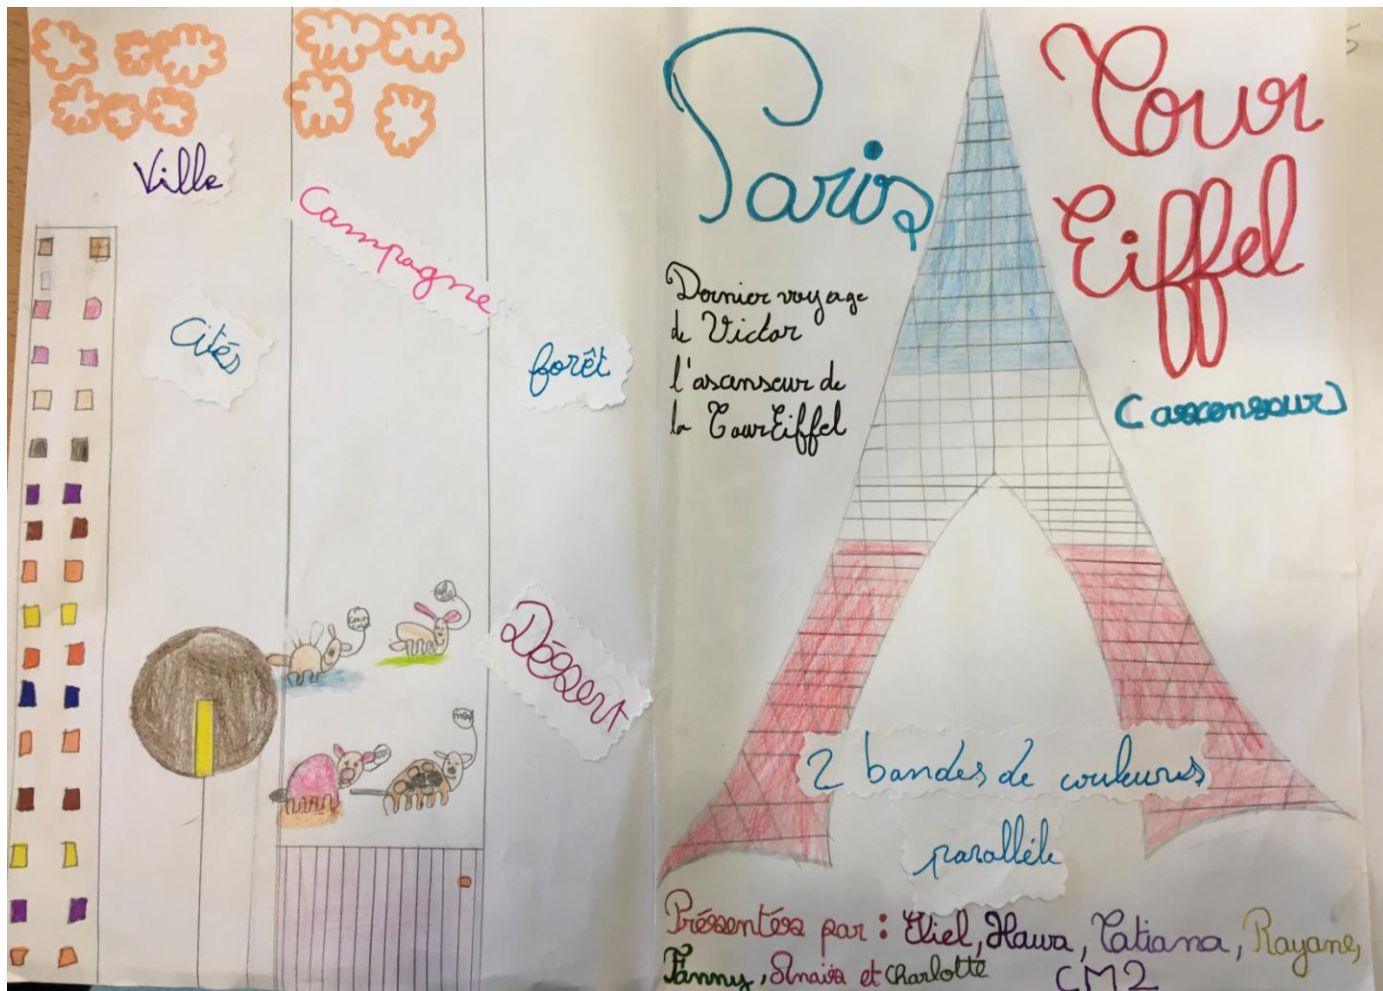 Ville
Campagne
Cités
forêt
Désert
Paris
Tour
Eiffel
(ascenseur)
Dernier voyage
de Victor
l'asanseur de
la Tour Eiffel
2 bandes de couleures
parallèle
Présentées par : Eliel, Hawa, Tatiana, Rayane,
Fanny, Anaïs et Charlotte
CM2